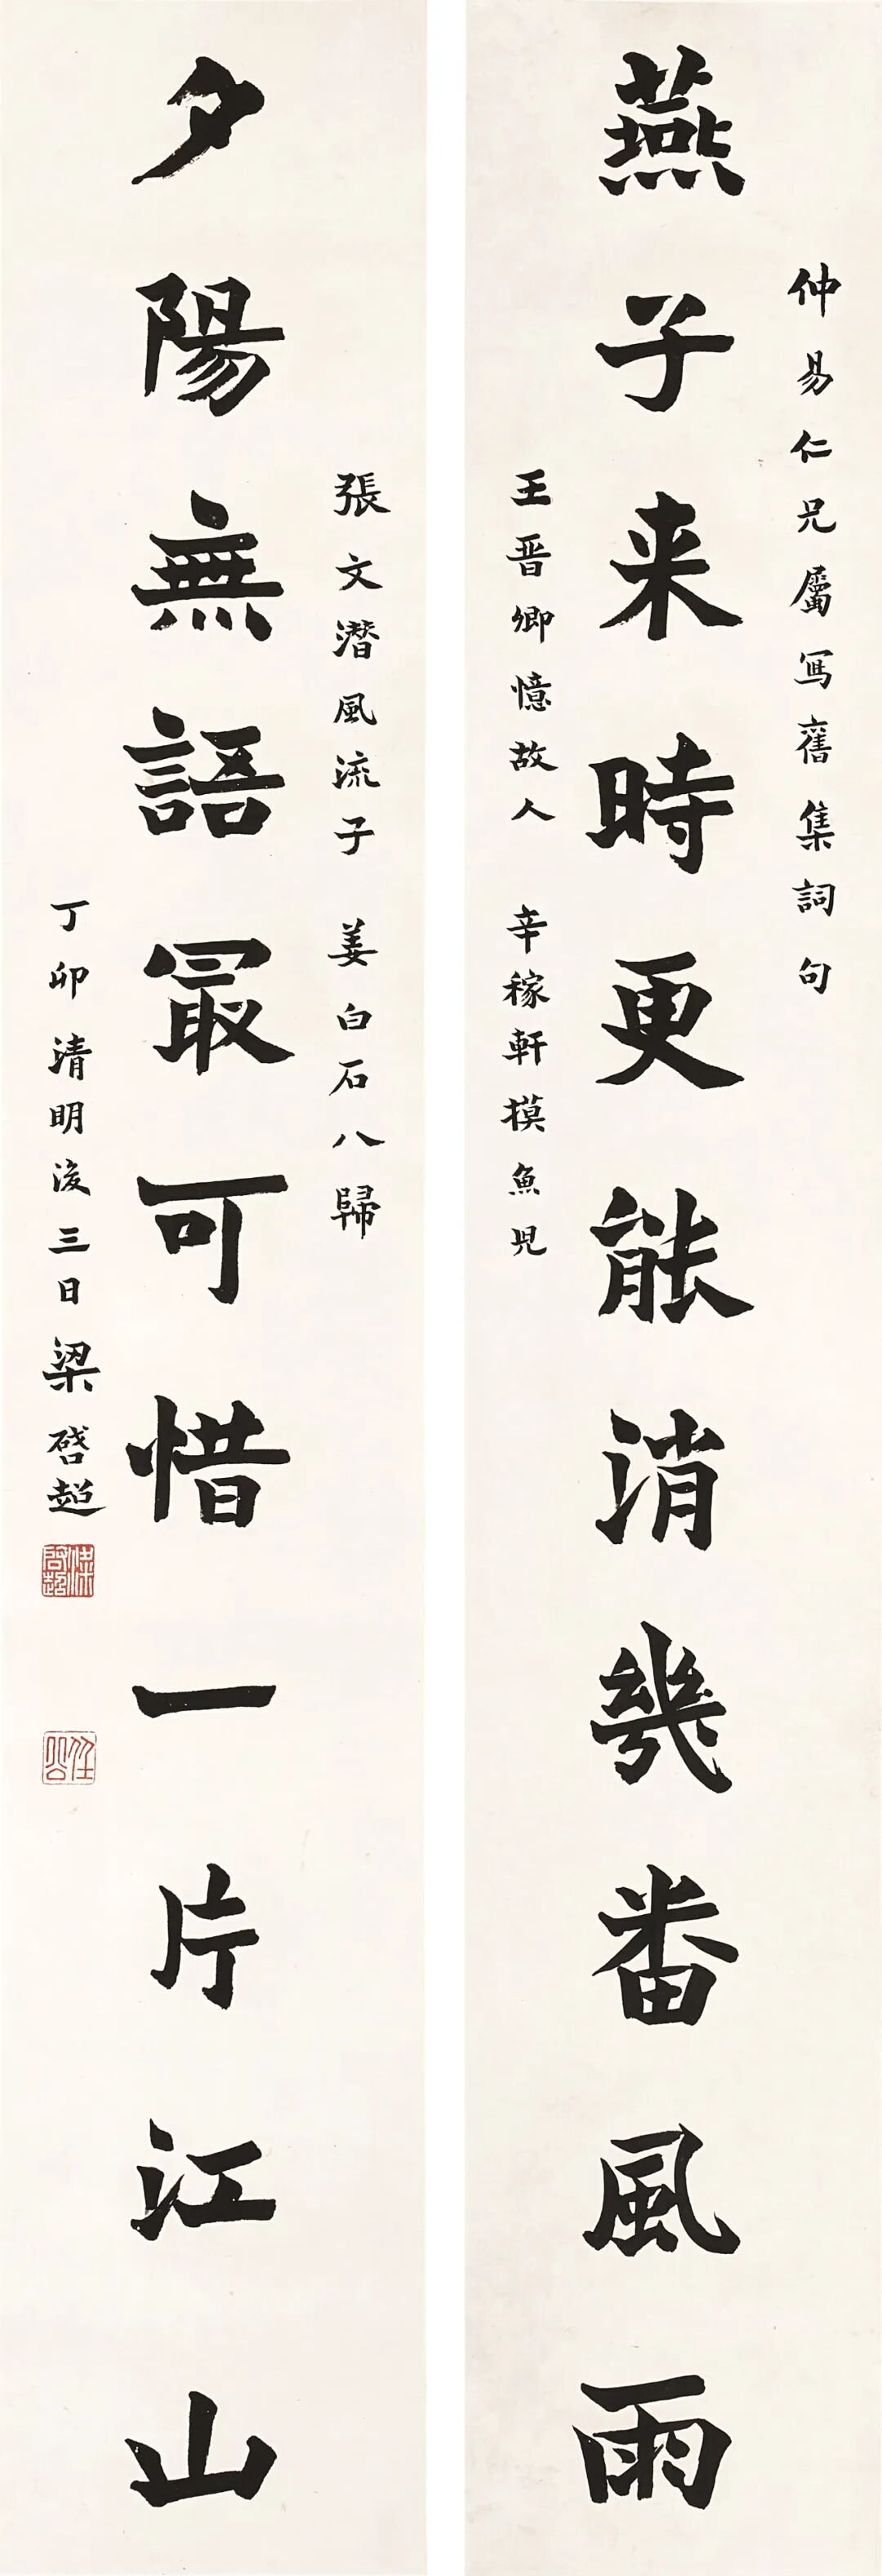 仲易仁兄屬寫舊集詞句
燕子来時更能消幾番風雨
王晋卿憶故人 辛稼軒摸魚児
張文潛風流子 姜白石八歸
夕陽無語最可惜一片江山
丁卯清明後三日梁啓超
梁啓超
任公